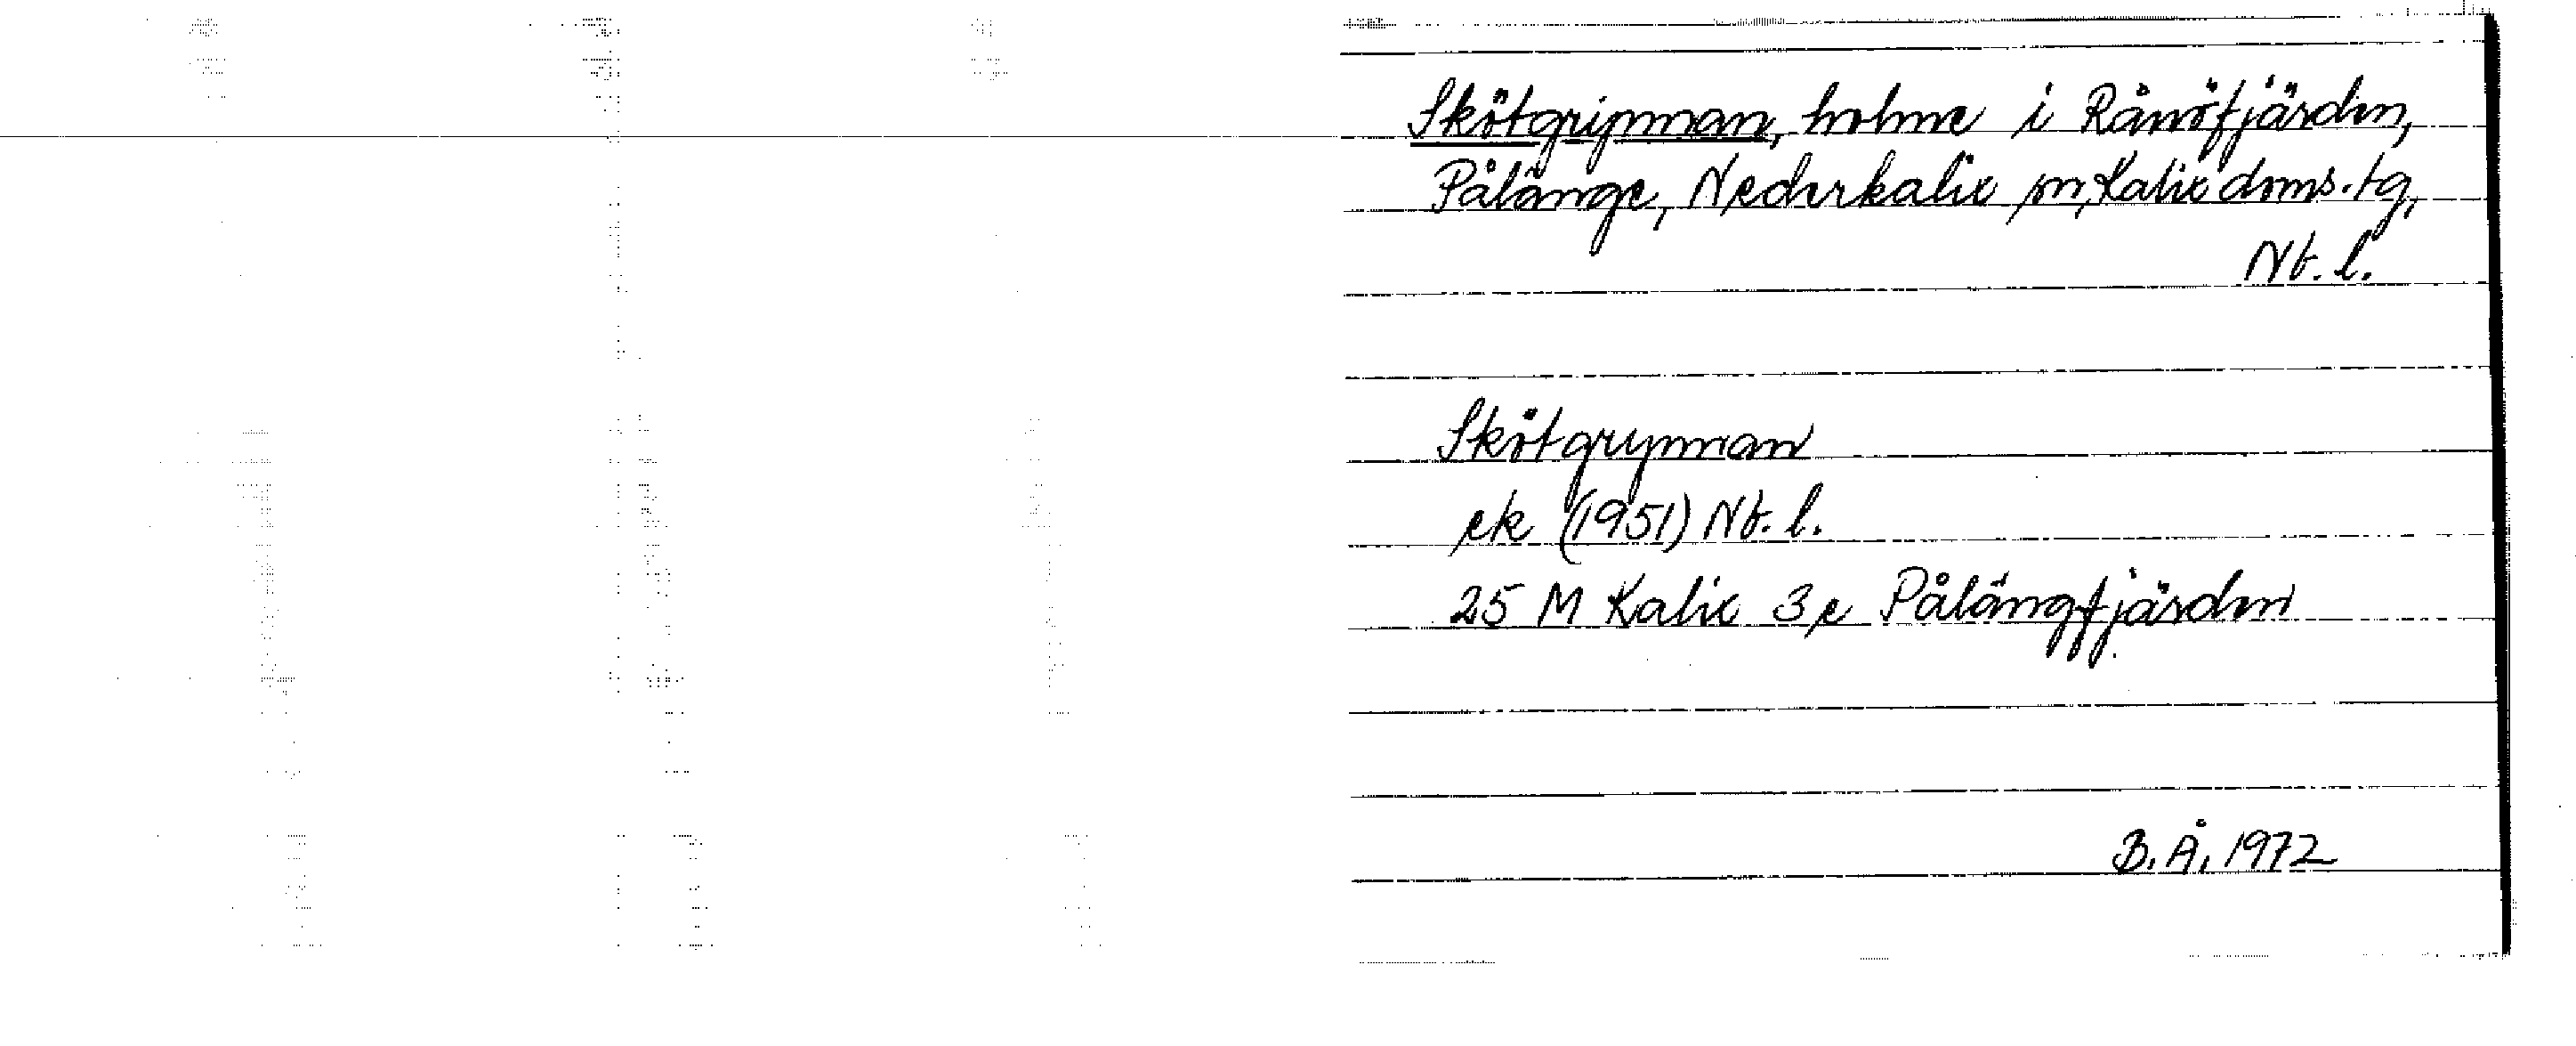 Skötgrynnan, holme i Rånöfjärden,
Pålänge, Nederkalix sn, Kalix doms. tg,
Nb. l.
Skötgrynnan
ek (1951) Nb. l.
25 M Kalix 3 e Pålängfjärden
B. Å. 1972